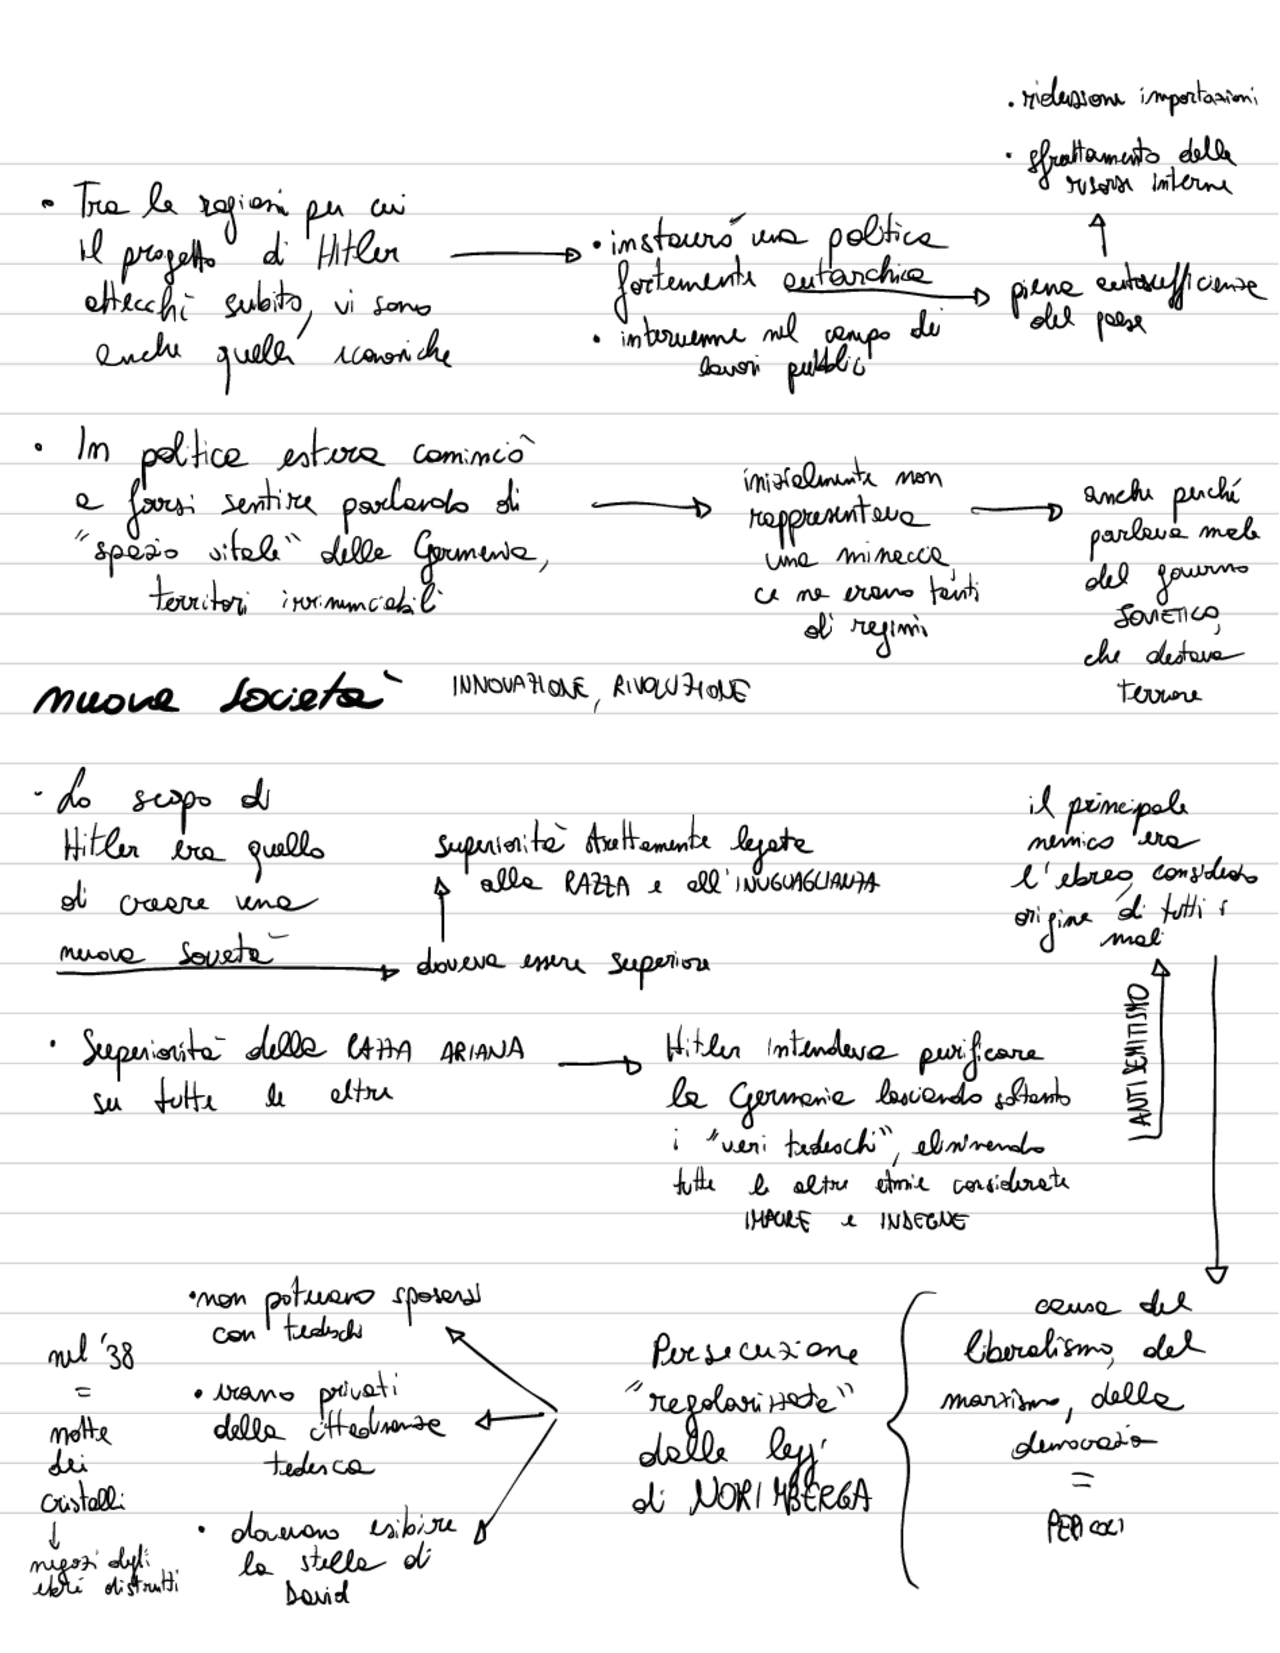 • riduzione importazioni
• sfruttamento delle
risorse interne
• Tra le ragioni per cui
il progetto di Hitler
attecchì subito, vi sono
anche quelle economiche
• instaurò una politica
fortemente autarchica
• intervenne nel campo dei
lavori pubblici
piena autosufficienza
del paese
• In politica estera cominciò
a farsi sentire parlando di
"spazio vitale" della Germania,
territori irrinunciabili
inizialmente non
rappresentava
una minaccia,
ce ne erano tanti
di regimi
anche perché
parlava male
del governo
SOVIETICO,
che destava
terrore
nuova società INNOVAZIONE, RIVOLUZIONE
• Lo scopo di
Hitler era quello
di creare una
nuova società
superiorità strettamente legata
alla RAZZA e all'INUGUAGLIANZA
doveva essere superiore
il principale
nemico era
l'ebreo, considerato
origine di tutti i
mali
ANTISEMITISMO
• Superiorità della RAZZA ARIANA
su tutte le altre
Hitler intendeva purificare
la Germania lasciando soltanto
i "veri tedeschi", eliminando
tutte le altre etnie considerate
IMPURE e INDEGNE
causa del
liberalismo, del
marxismo, della
democrazia
=
PERICOLI
Persecuzione
"regolarizzata"
dalle leggi
di NORIMBERGA
• non potevano sposarsi
con tedeschi
• erano privati
della cittadinanza
tedesca
• dovevano esibire
la stella di
David
nel '38
=
notte
dei
cristalli
↓
negozi degli
ebrei distrutti